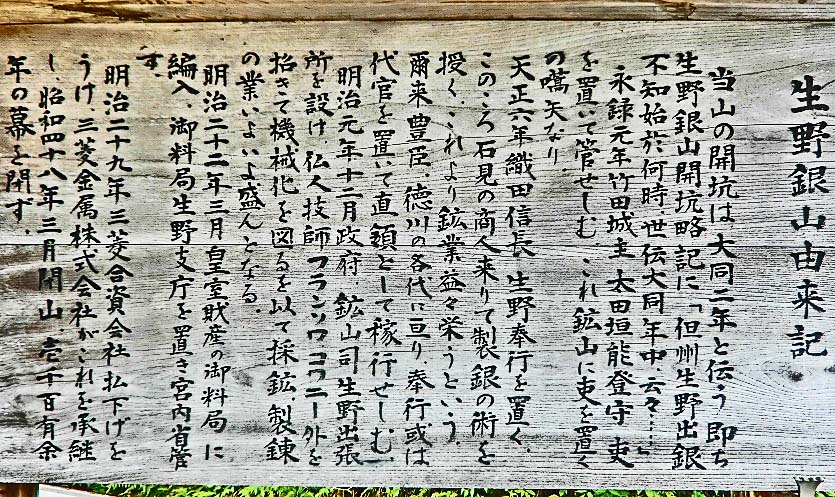 生野銀山由来記
当山の開坑は、大同二年と伝う即ち
生野銀山開坑略記に「但州生野出銀
不知始於何時、世伝大同年中、云々……」
永録元年竹田城主、太田垣能登守、吏
を置いて管せしむ、これ鉱山に吏を置く
の嚆矢なり、
天正六年織田信長、生野奉行を置く、
このころ石見の商人来りて製銀の術を
授く、これより鉱業益々栄うという、
爾来豊臣、徳川の各代に亘り、奉行或は
代官を置いて直領として稼行せしむ、
明治元年十二月政府、鉱山司生野出張
所を設け、仏人技師フランソワコワニー外を
招きて機械化を図るを以て採鉱製錬
の業いよいよ盛んとなる、
明治二十二年三月皇室財産の御料局に
編入、御料局生野支庁を置き宮内省管
す、
明治二十九年三菱合資会社払下げを
うけ、三菱金属株式会社がこれを承継
し、昭和四十八年三月閉山、壱千百有余
年の幕を閉ず、